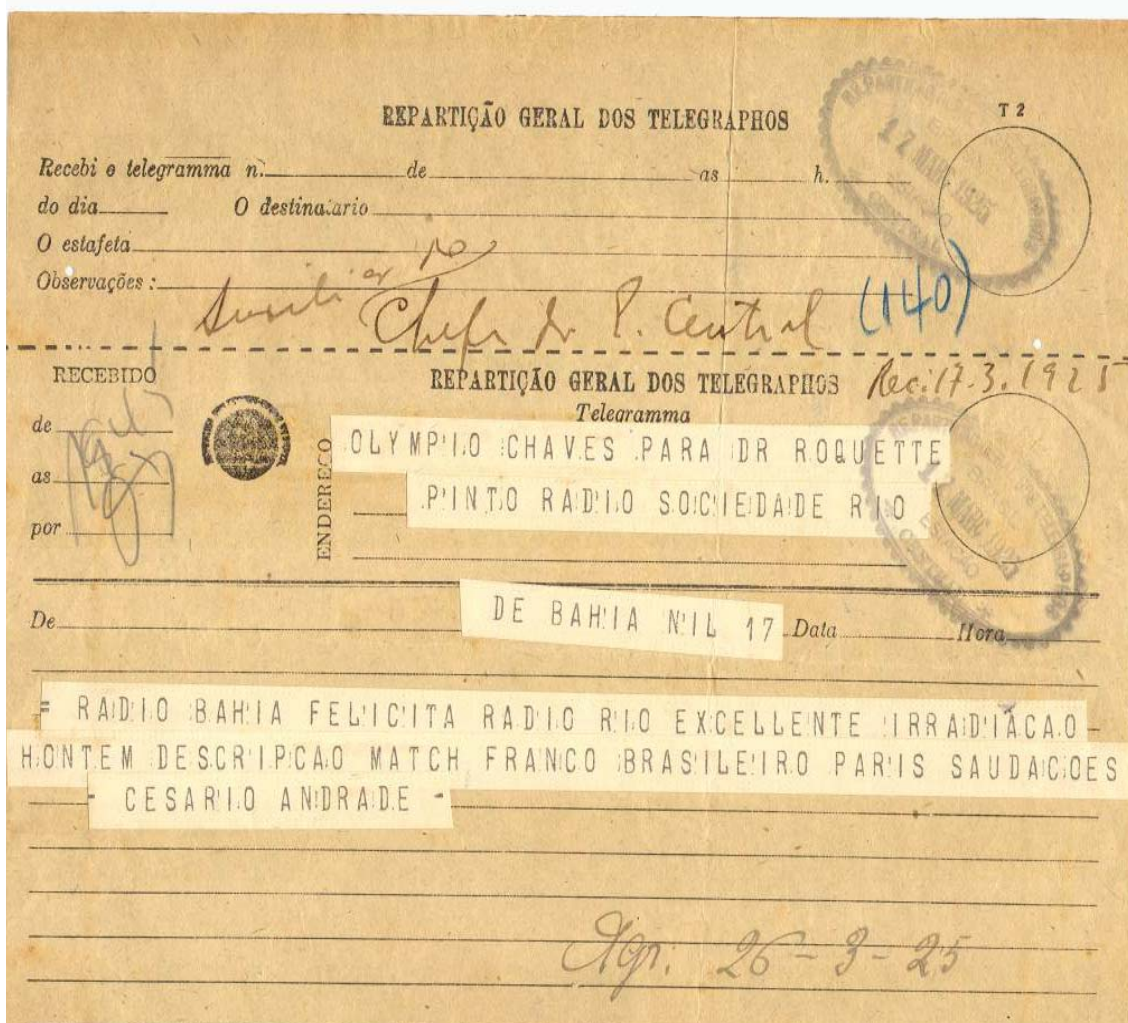 REPARTIÇÃO GERAL DOS TELEGRAPHOS
T 2
Recebi o telegramma n. de as h.
do dia O destinatario
O estafeta
Observações :
Chefe da E. Central (140)
17 MARC 1925
RECEBIDO
REPARTIÇÃO GERAL DOS TELEGRAPHOS Rec. 17.3.1925
Telegramma
de
as
por
ENDEREÇO
OLYMPIO CHAVES PARA DR ROQUETTE
PINTO RADIO SOCIEDADE RIO
17 MARC 1925
ESTAÇÃO
CENTRAL
De DE BAHIA NIL 17 Data Hora
= RADIO BAHIA FELICITA RADIO RIO EXCELLENTE IRRADIACAO -
HONTEM DESCRIPCAO MATCH FRANCO BRASILEIRO PARIS SAUDACOES
- CESARIO ANDRADE -
Agr. 26-3-25